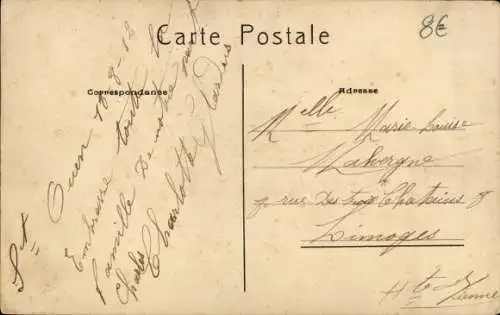 Carte Postale
8€
Correspondance
Adresse
St Ouen 18-8-12
Embrasse toute la
famille De notre part
Charles
Charlotte
Melle Marie Louise
Lavergne
7 rue Des trois Chatains 7
Limoges
Hte Vienne